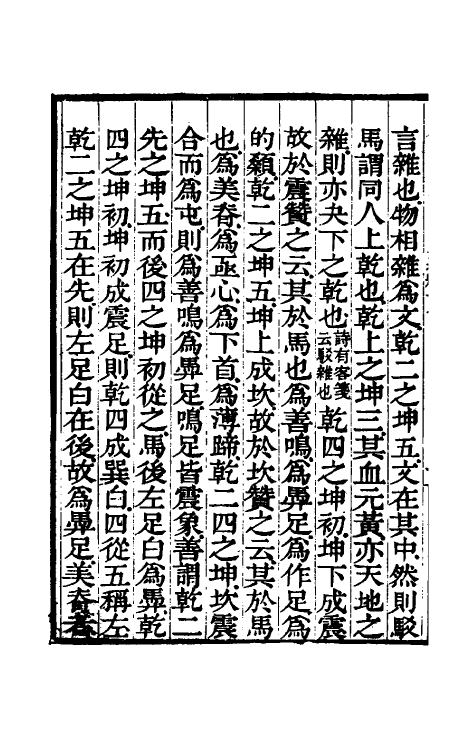 言雜也物相雜為文乾二之坤五文在其中然則駁
馬謂同人上乾也乾上之坤三其血元黃亦天地之
雜則亦夬下之乾也詩有客箋云駁雜也乾四之坤初坤下成震
故於震贊之云其於馬也為善鳴為馵足為作足為
的顙乾二之坤五坤上成坎故於坎贊之云其於馬
也為美脊為亟心為下首為薄蹄乾二四之坤坎震
合而為屯則為善鳴為馵足鳴足皆震象善謂乾二
先之坤五而後四之坤初從之馬後左足白為馵乾
四之坤初坤初成震足則乾四成巽白四從五稱左
乾二之坤五在先則左足白在後故為馵足美脊者